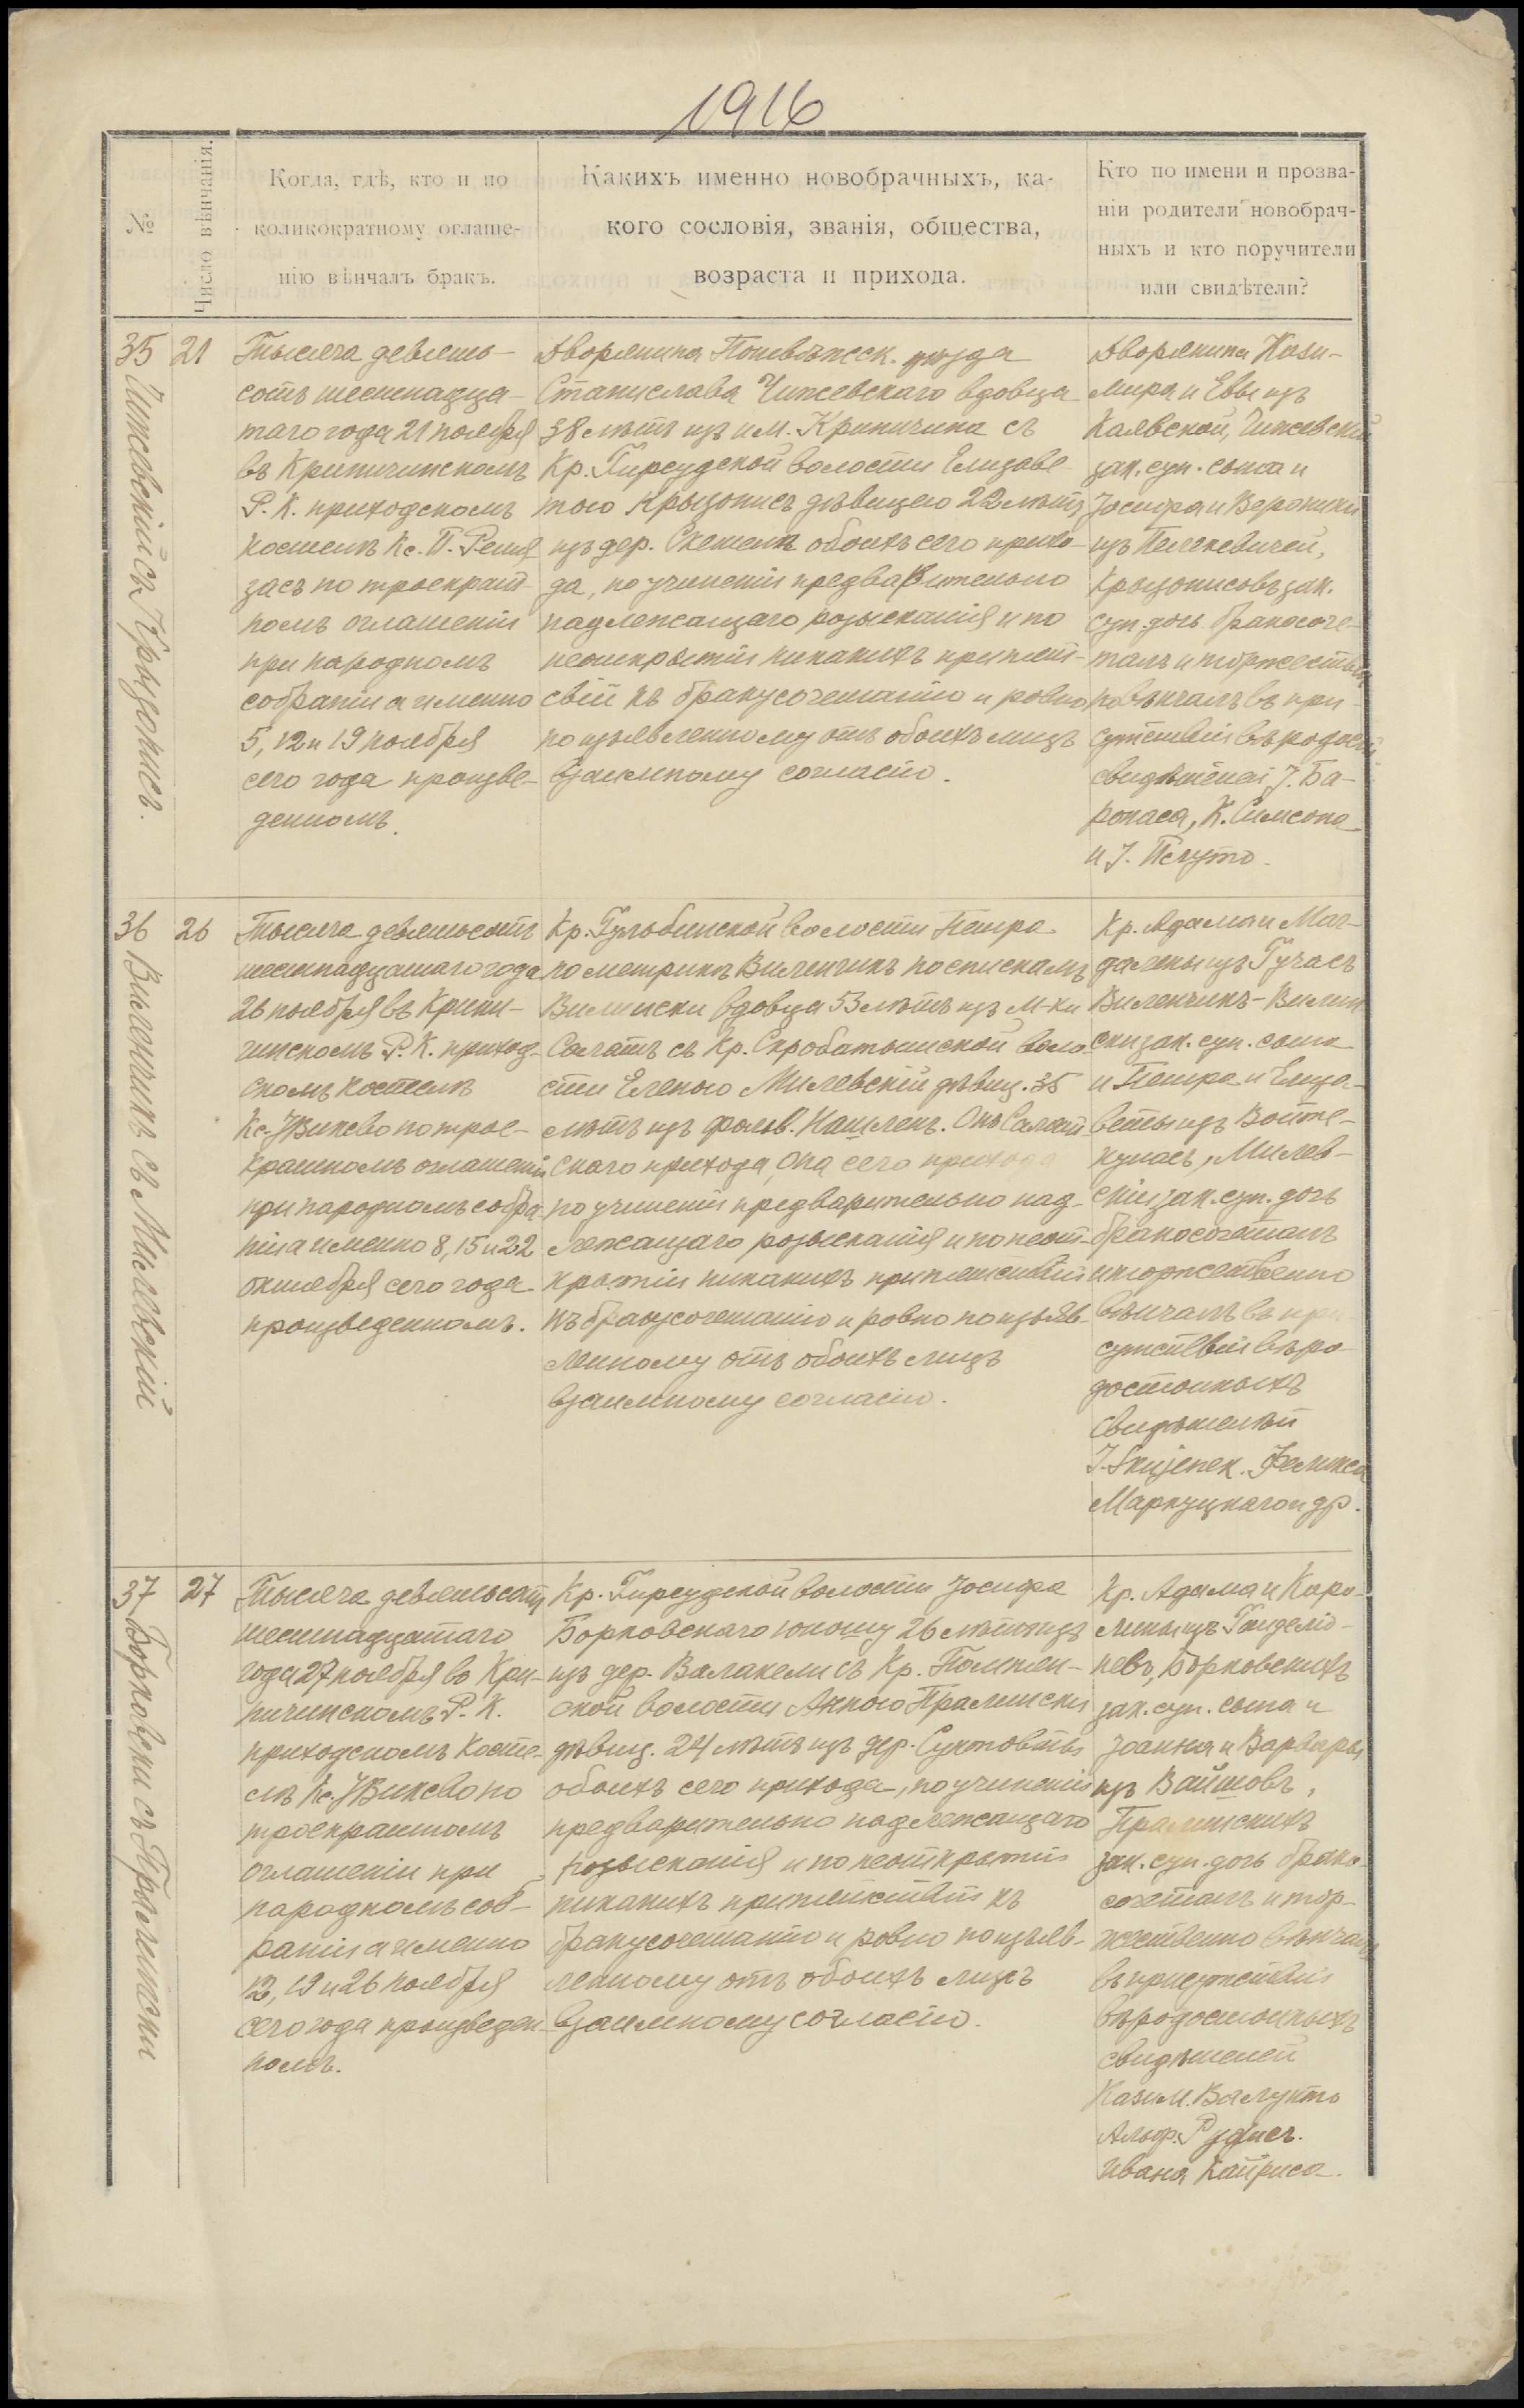 1916
№
Число вѣнчанія.
Когда, гдѣ, кто и по
коликократному оглаше-
нію вѣнчалъ бракъ.
Какихъ именно новобрачныхъ, ка-
кого сословія, званія, общества,
возраста и прихода.
Кто по имени и прозва-
ніи родители новобрач-
ныхъ и кто поручители
или свидѣтели?
35
Чижевскій съ Крызонисъ.
21
Тысяча девять-
сотъ шестнадца-
таго года 21 ноября
въ Криничинскомъ
Р. К. приходскомъ
костелѣ Кс. П.
по троекрат-
номъ оглашеніи
при народномъ
собраніи а именно
5, 12 и 19 ноября
сего года произве-
денномъ.
Дворянина Поневѣжск. уѣзда
Станислава Чижевскаго вдовца
38 лѣтъ изъ им. Криничина съ
Кр. Гирсудской волости Елизаве-
тою Крызонисъ дѣвицею 22 лѣтъ
изъ дер. обоихъ сего прихо-
да, по учиненіи предварительно
надлежащаго розысканія и по
неоткрытіи никакихъ препят-
свій къ бракусочетанію и ровно
по изъявленному отъ обоихъ лицъ
взаимному согласію.
Дворянина Кази-
мира и Евы изъ
Каявской, Чижевскій
зак. суп. сына и
Іосифа и Вероники
изъ Пелекевичей,
Крызонисовъ зак.
суп. дочь бракосоче-
талъ и торжественно
повѣнчалъ въ при-
сутствіи вѣродост.
свидѣтелей І. Ба-
ронаса, К. Симсона
и І. Пелуто.
36
Виленчикъ съ Милевскій
26
Тысяча девятьсотъ
шестнадцатаго года
26 ноября въ Крини-
чинскомъ Р. К. приход-
скомъ костелѣ
Кс. по трое-
кратномъ оглашеніи
при народномъ собра-
ніи а именно 8, 15 и 22
октября сего года
произведенномъ.
Кр. Гульбинской волости Петра
по метрикѣ Виленчикъ по спискамъ
Вилински вдовца 53 лѣтъ изъ м-ки
Салатъ съ Кр. Скробатышской воло-
сти Еленою Милевскій дѣвиц. 35
лѣтъ изъ фольв. Онъ Салат-
скаго прихода, она сего прихода
по учиненіи предварительно над-
лежащаго розысканія и по неот-
крытіи никакихъ препятствій
къ бракусочетанію и ровно по изъяв-
леному отъ обоихъ лицъ
взаимному согласію.
Кр. Адама и Маг-
далены изъ Гучасъ
Виленчикъ-Вилин
ски зак. суп. сына
и Петра и Елиза-
веты изъ Войтe-
кунасъ, Милев-
скіи зак. суп. дочь
бракосочеталъ
и торжественно
вѣнчалъ въ при
сутствіи вѣро
достойныхъ
свидѣтелѣй
Феликса
Маркуцкаго и др.
37
Борковски съ Пралински
27
Тысяча девятьсотъ
шестнадцатаго
года 27 ноября въ Кри-
ничинскомъ Р. К.
приходскомъ Косте-
лѣ Кс. по
троекратномъ
оглашеніи при
народномъ соб-
раніи а именно
12, 19 и 26 ноября
сего года произведен-
номъ.
Кр. Гирсудской волости Іосифа
Борковскаго юношу 26 лѣтъ изъ
изъ дер. Валакели съ Кр. Помпян-
ской волости Анною Пралински
дѣвиц. 24 лѣтъ изъ дер.
обоихъ сего прихода, по учиненіи
предварительно надлежащаго
розысканія и по неоткрытіи
никакихъ препятствій къ
бракусочетанію и ровно по изъяв-
ленному отъ обоихъ лицъ
взаимному согласію.
Кр. Адама и Каро-
лины изъ Гинделю-
невъ, Борковскихъ
зак. суп. сына и
Іоанна и Варвары
изъ Вайшовъ,
Пралинскихъ
зак. суп. дочь брако-
сочеталъ и тор-
жественно вѣнчалъ
въ присутствіи
вѣродостойныхъ
свидѣтелей
Казим. Валукто
Альф.
Ивана Кайриса.